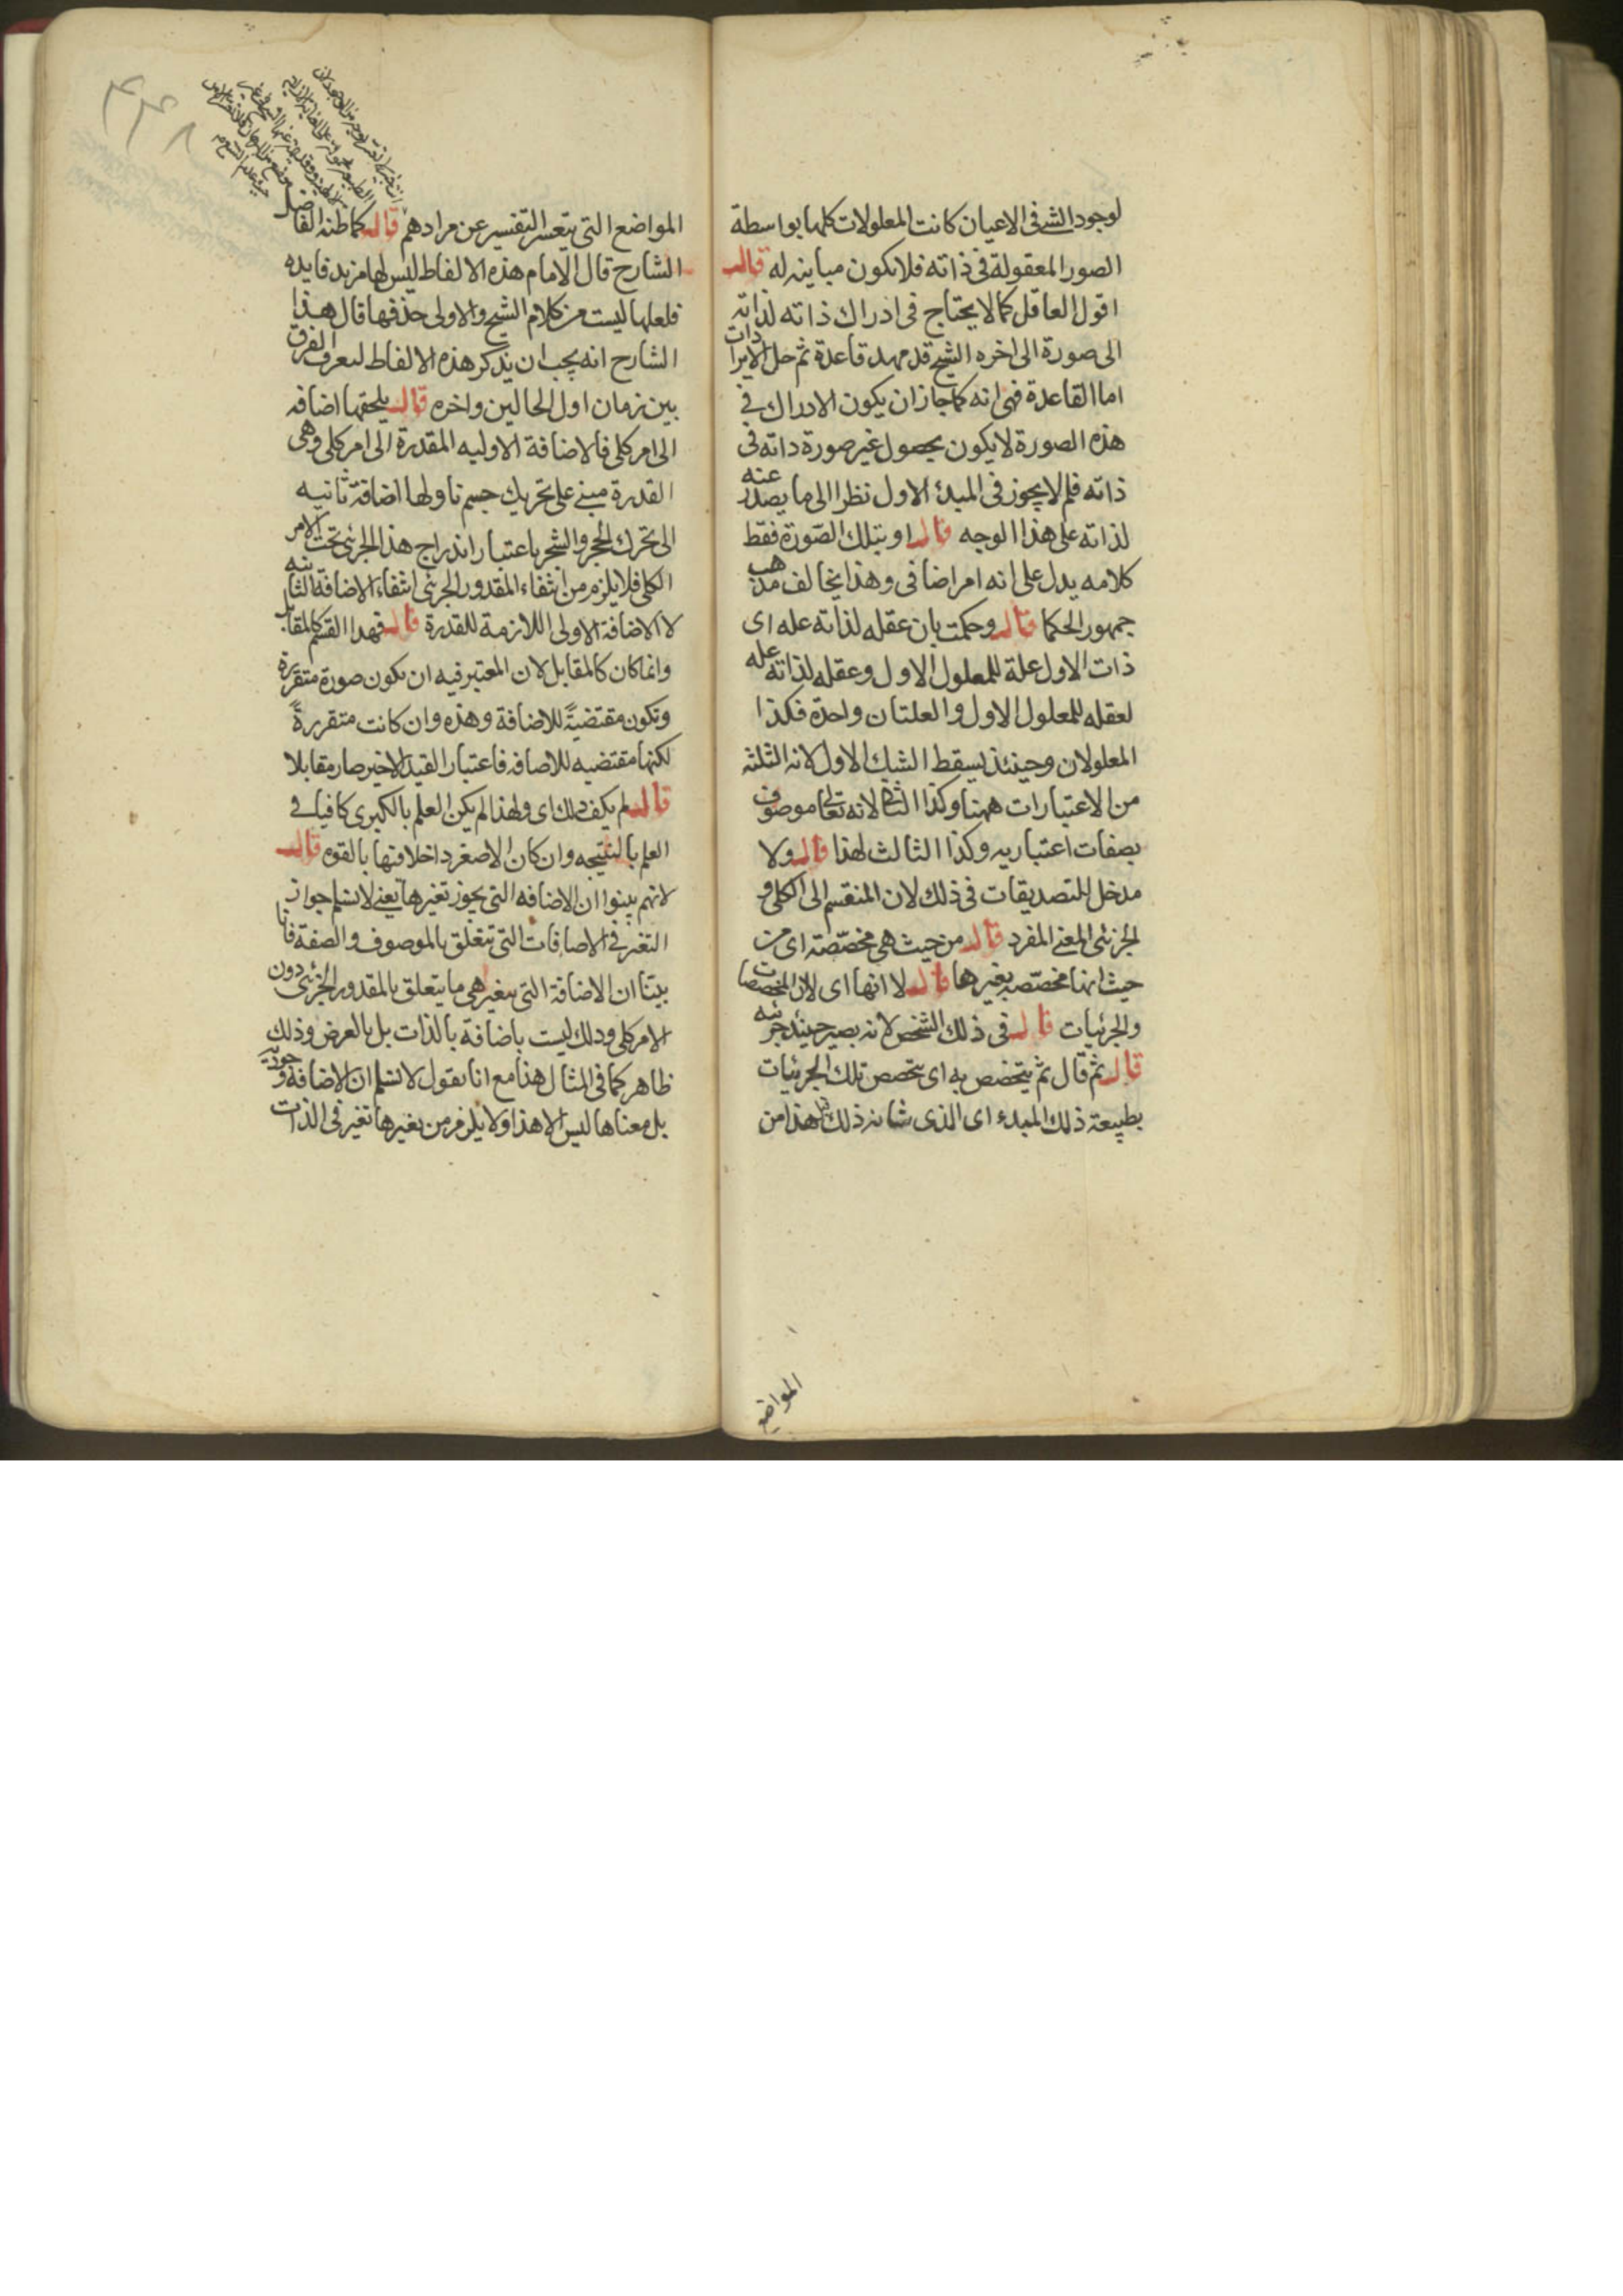 لوجود الشئ فى الاعيان كانت المعلولات كلها بواسطة
الصور المعقولة فى ذاته فلا يكون مباينه له قال
اقول العاقل كما لا يحتاج فى ادراك ذاته لذاته
الى صورة الى اخره الشيخ قد مهد قاعدة ثم حل الايرادات
اما القاعدة فهى انه كما جاز ان يكون الادراك فى
هذه الصورة لا يكون بحصول غير صورة ذاته فى
ذاته فلم لا يجوز فى المبدئ الاول نظرا الى ما يصدر عنه
لذاته على هذا الوجه قال او بتلك الصّورة فقط
كلامه يدل على انه امر اضافى وهذا يخالف مذهب
جمهور الحكما قال وحكمت بان عقله لذاته عله اى
ذات الاول علة للمعلول الاول وعقله لذاته عله
لعقله للمعلول الاول والعلتان واحدة فكذا
المعلولان وحينئذ يسقط الشك الاول لانه الثلثه
من الاعتبارات ههنا وكذا الثانى لانه تعالى موصوف
بصفات اعتباريه وكذا الثالث لهذا قال ولا
مدخل للتصديقات فى ذلك لان المنقسم الى الكلى و
الجزئى المعنى المفرد قال من حيث هى مخصّصة اى من
حيث انها مخصّصه بغيرها قال لا انها اى لان المخصصات
والجزئيات قال فى ذلك الشخص لانه يصير حينئذ جزئيه
قال ثم قال ثم يتخصص به اى يتخصص تلك الجزئيات
بطبيعة ذلك المبدء اى الذى شانه ذلك هذا من
المواضع
المواضع التى يتعسر التفسير عن مرادهم قال كما ظنه الفاضل
الشارح قال الامام هذه الالفاظ ليس لها مزيد فايده
فلعلها ليست من كلام الشيخ والاولى حذفها قال هذا
الشارح انه يجب ان يذكر هذه الالفاظ ليعرف الفرق
بين زمان اول الحالين واخره قال يلحقها اضافه
الى امر كلى فالاضافة الاوليه المقدرة الى امر كلى وهى
القدرة مبنى على تحريك جسم ما ولها اضافة ثانيه
الى تحرك الحجر والشجر باعتبار اندراج هذا الجزئى تحت الامر
الكلى فلا يلزم من انتفاء المقدور الجزئى انتفاء الاضافة الثانيه
لا الاضافة الاولى اللازمة للقدرة قال فهذا القسم كالمقابل
وانما كان كالمقابل لان المعتبر فيه ان يكون صورة متقررة
وتكون مقتضيةً للاضافة وهذه وان كانت متقررةً
لكنها مقتضيه للاضافه فاعتبار القيد الاخير صار مقابلا
قال لم يكف ذلك اى ولهذا لم يكن العلم بالكبرى كافيا فى
العلم بالنتيجه وان كان الاصغر داخلا فيها بالقوه قال
لانهم بينوا ان الاضافه التى يجوز تغيرها يعنى لا نسلم جواز
التغير فى الاضافات التى تتعلق بالموصوف والصفة فانا
بيّنا ان الاضافة التى يتغير هى ما يتعلق بالمقدور الجزئى دون
الامر كلى وذلك ليست باضافة بالذات بل بالعرض وذلك
ظاهر كما فى المثال هذا مع انا نقول لا نسلم ان الاضافة وجوديه
بل معناها ليس الا هذا ولا يلزم من تغيرها تغير فى الذات
٤٤٨